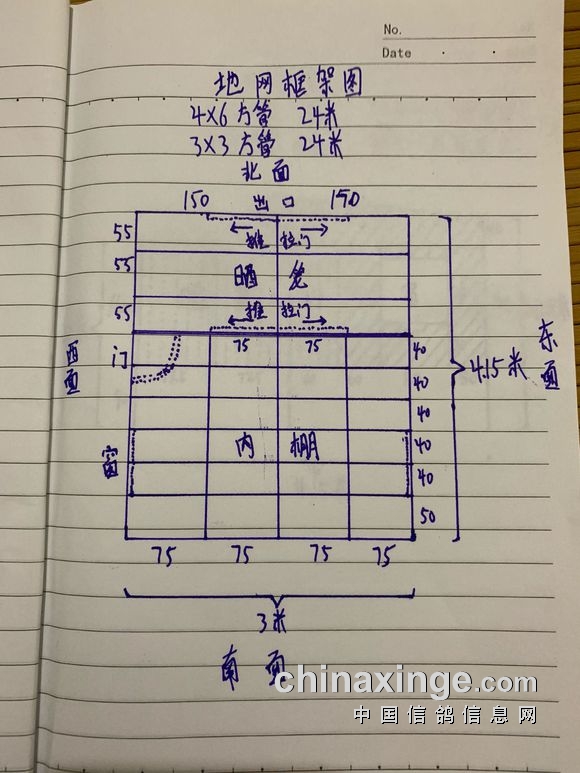 No.
Date
地网框架图
4×6方管 24米
3×3方管 24米
北面
150 出口 150
55
推 拉门
55
晒 笼
55
推 拉门
西面
东面
门
75 75
40
415米
40
40
窗
内 棚
40
40
50
75 75 75 75
3米
南面
chinaxinge.com
中国信鸽信息网